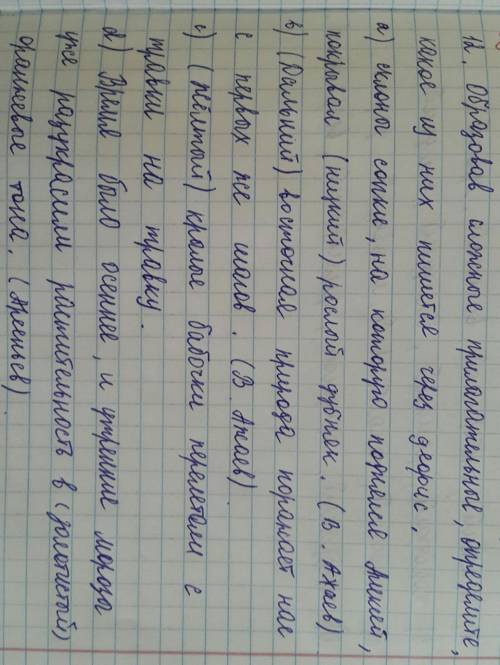 12. Образовав сложное прилагательные, определите,
какое из них пишется через дефис.
a) склоны сопке, на которую поднялся Алисей,
покрывал (низкий) рослый дубняк. (В. Ажаев)
b) (Дальний) восточная природа поражает нас
с первых же шагов. (В. Ажаев)
c) (жёлтый) крылые бабочки перелетали с
травки на травку.
d) Время было осеннее, и утренние мороза
уже разукрасили растительность в (золотистой)
оранжевое тона. (Арсеньев)